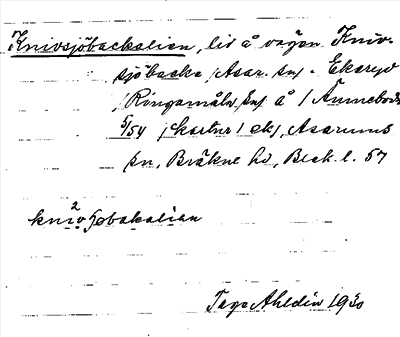 Knivsjöbackalien, lid å vägen Kniv-
sjöbacka /Asar. sn/ - Ekeryd
/Ringamåla sn/ å / Annebods
5/54 /kartur/ ek/, Asarums
sn, Bräkne hd, Blek. l. 57
kni2vʃobakalien
Tage Ahldén 1930